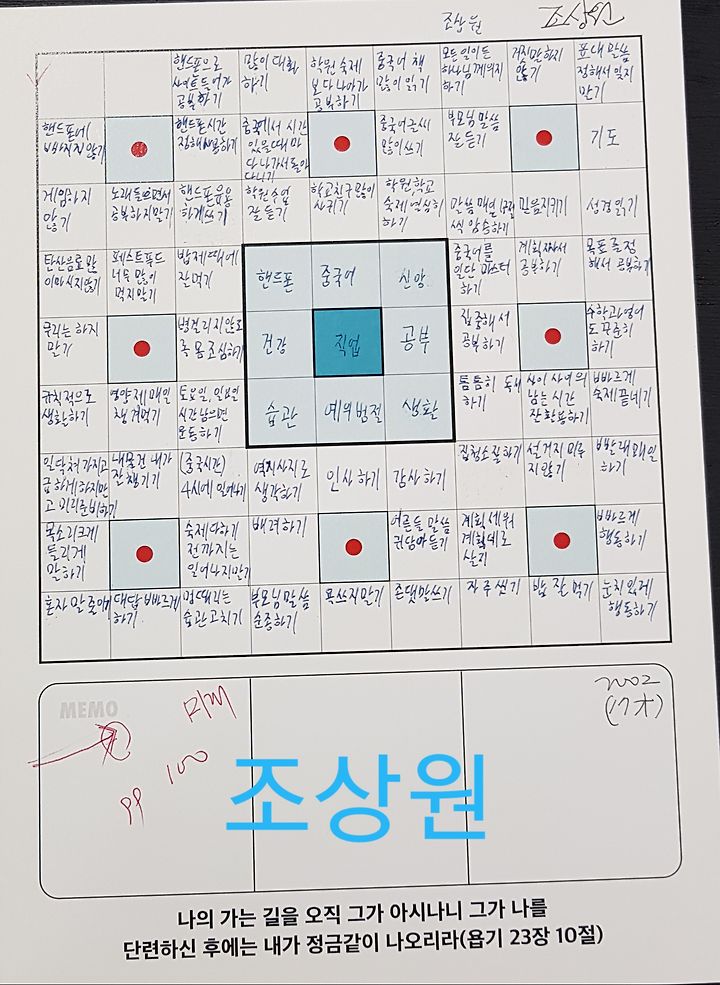 조상원
조상원
핸드폰으로
사이트들어가
공부하기
많이 대화
하기
학원 숙제
보다 나아가
공부하기
중국어 책
많이 읽기
모든 일이든
하나님께의지
하기
거짓말하지
않기
정해서 잊지
말기
핸드폰에
빠지지 않기
핸드폰시간
정해사용하기
시간
있을때마
다 나가서돌아
다니기
중국어글씨
많이쓰기
부모님 말씀
잘 듣기
기도
게임하지
않기
노래들으면서
공부하지말기
핸드폰유용
하게쓰기
학원수업
잘 듣기
학교친구 많이
사귀기
학원,학교
숙제 열심히
하기
말씀 매일
씩 암송하기
믿음지키기
성경 읽기
탄산음료 많
이마시지않기
페스트푸드
너무 많이
먹지말기
밥 제때에
잘먹기
핸드폰
중국어
신앙
중국어를
일단 마스터
하기
계획짜서
공부하기
목표를정
해서 공부하기
무리는 하지
말기
병걸리지않도
록 몸조심하기
건강
직업
공부
집중해서
공부하기
수학과영어
도 꾸준히
하기
규칙적으로
생활하기
영양제매일
챙겨먹기
토요일, 일요일
시간남으면
운동하기
습관
예의범절
생활
틈틈히
하기
사이사이의
남는시간
잘활용하기
빠르게
숙제 끝내기
일닥쳐가지고
급하게하지말
고 미리준비하기
내물건 내가
잘챙기기
(중국시간)
4시에 일어나기
역지사지로
생각하기
인사하기
감사하기
집청소잘하기
설거지 미루
지않기
빨래매일
하기
목소리크게
들리게
말하기
숙제다하기
전까지는
일어나지말기
배려하기
어른들 말씀
귀담아듣기
계획세워
계획대로
살기
빠르게
행동하기
혼자 말줄이기
대답빠르게
하기
멍때리는
습관고치기
부모님말씀
순종하기
욕쓰지말기
존댓말쓰기
자주씻기
밥 잘 먹기
눈치있게
행동하기
MEMO
2002
(17才)
100
99
조상원
나의 가는 길을 오직 그가 아시나니 그가 나를
단련하신 후에는 내가 정금같이 나오리라(욥기 23장 10절)